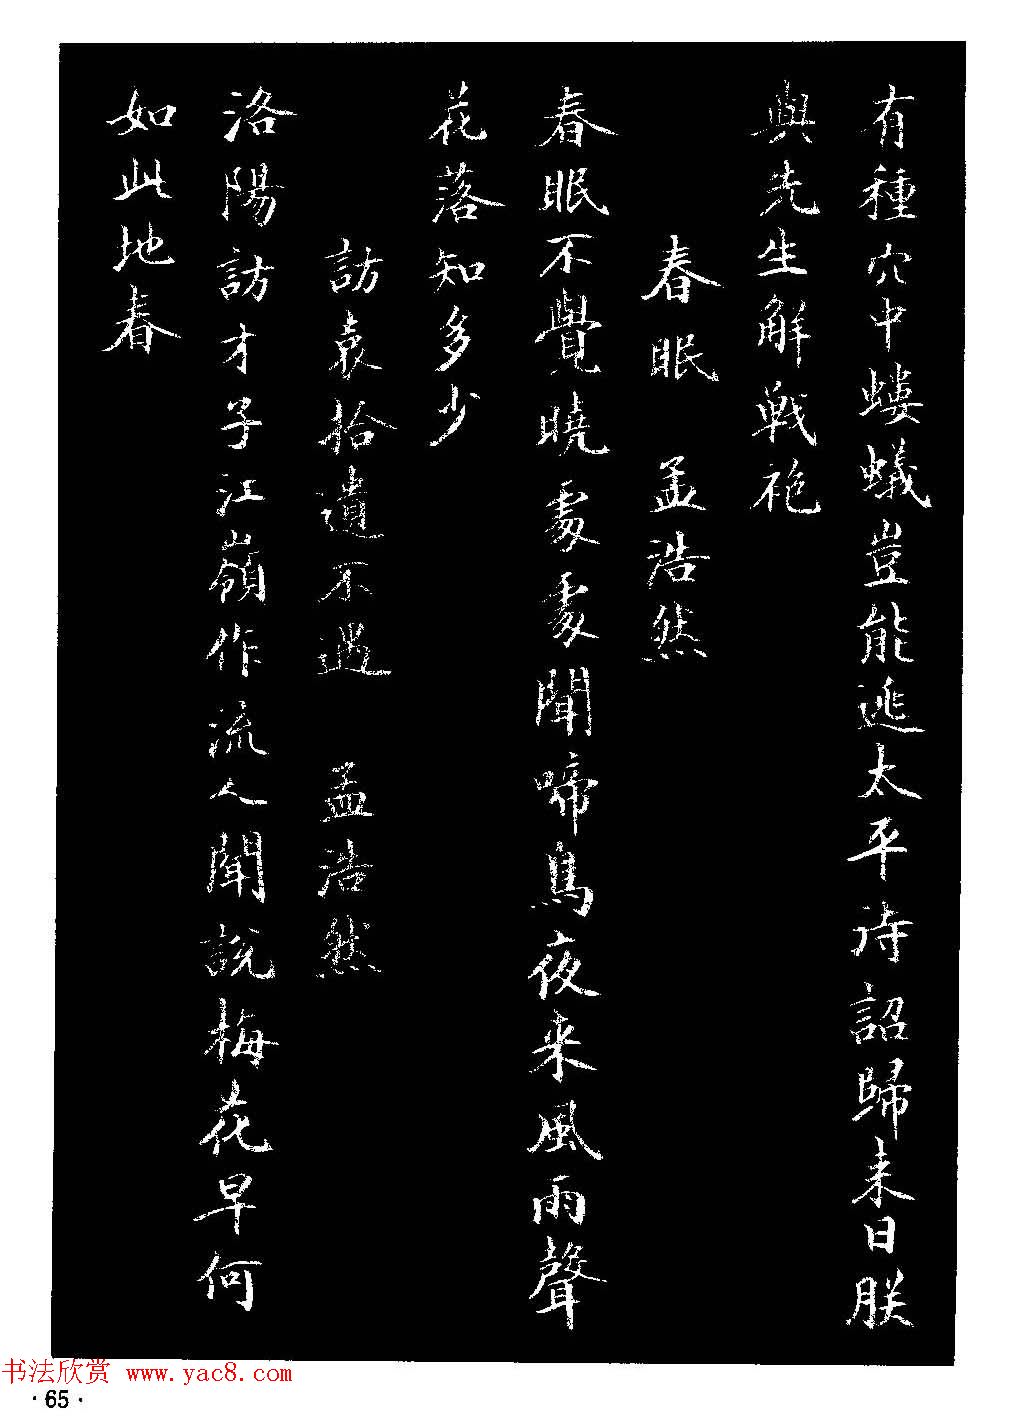 有種穴中螻蟻豈能逃太平待詔歸来日朕
與先生解戦袍
春眠 孟浩然
春眠不覺曉處處聞啼鳥夜来風雨聲
花落知多少
訪袁拾遺不遇 孟浩然
洛陽訪才子江嶺作流人聞說梅花早何
如此地春
书法欣赏 www.yac8.com
·65·